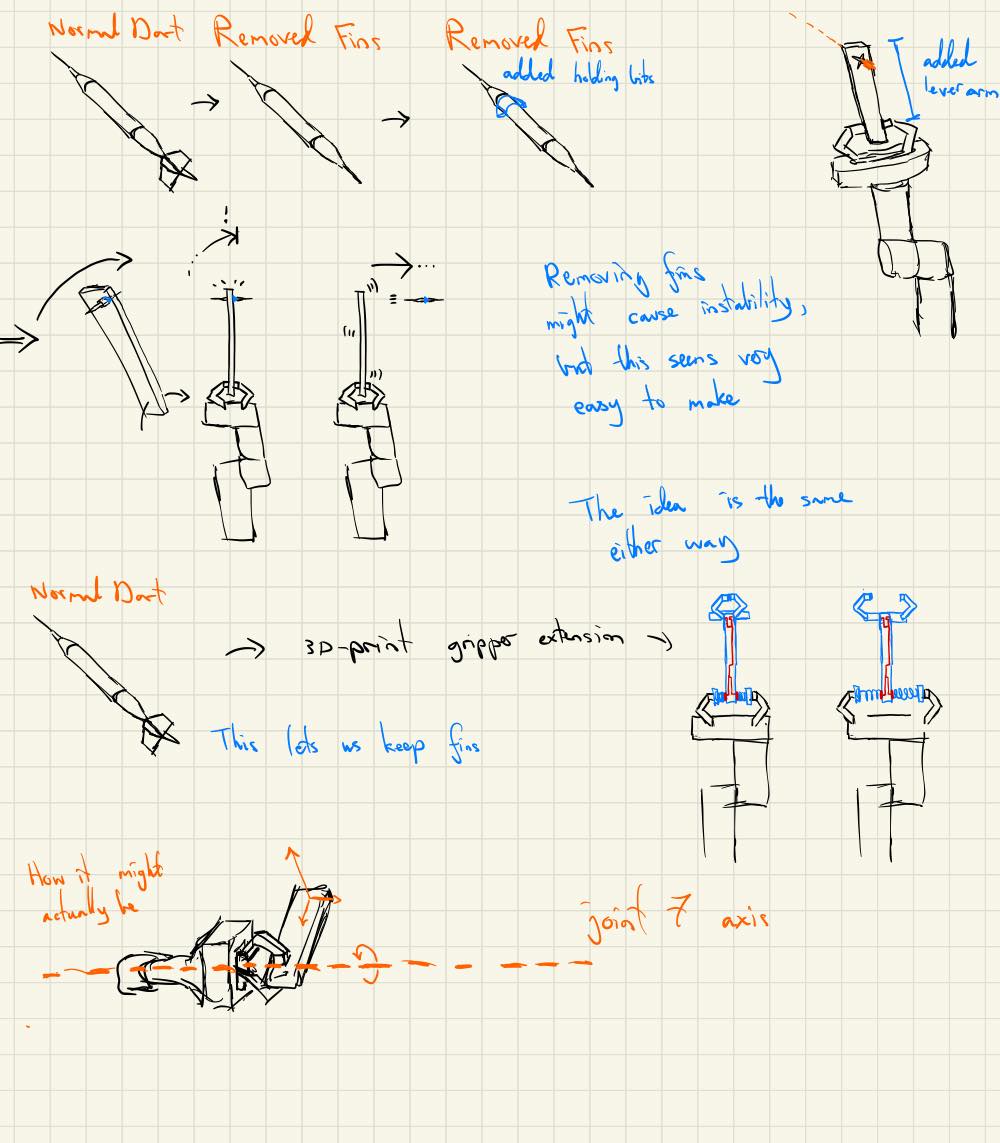 Normal Dart
Removed Fins
Removed Fins
added holding bits
added
lever arm
Removing fins
might cause instability,
but this seems very
easy to make
The idea is the same
either way
Normal Dart
3D-print gripper extension
This lets us keep fins
How it might
actually be
joint 7 axis